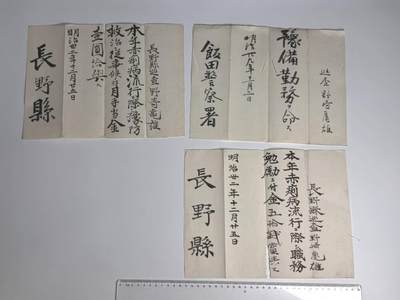 長野縣巡査野亀雄
本年赤痢病流行際豫防
救治従事候付月手当金
壹圓給與ス
明治廿二年十二月廿五日
長野縣
巡査野亀雄
豫備勤務ヲ命ス
明治年十二月一日
飯田警察署
長野縣巡査野亀雄
本年赤痢病流行際職務
勉勵付金五拾銭賞與ス
明治廿二年十二月廿五日
長野縣